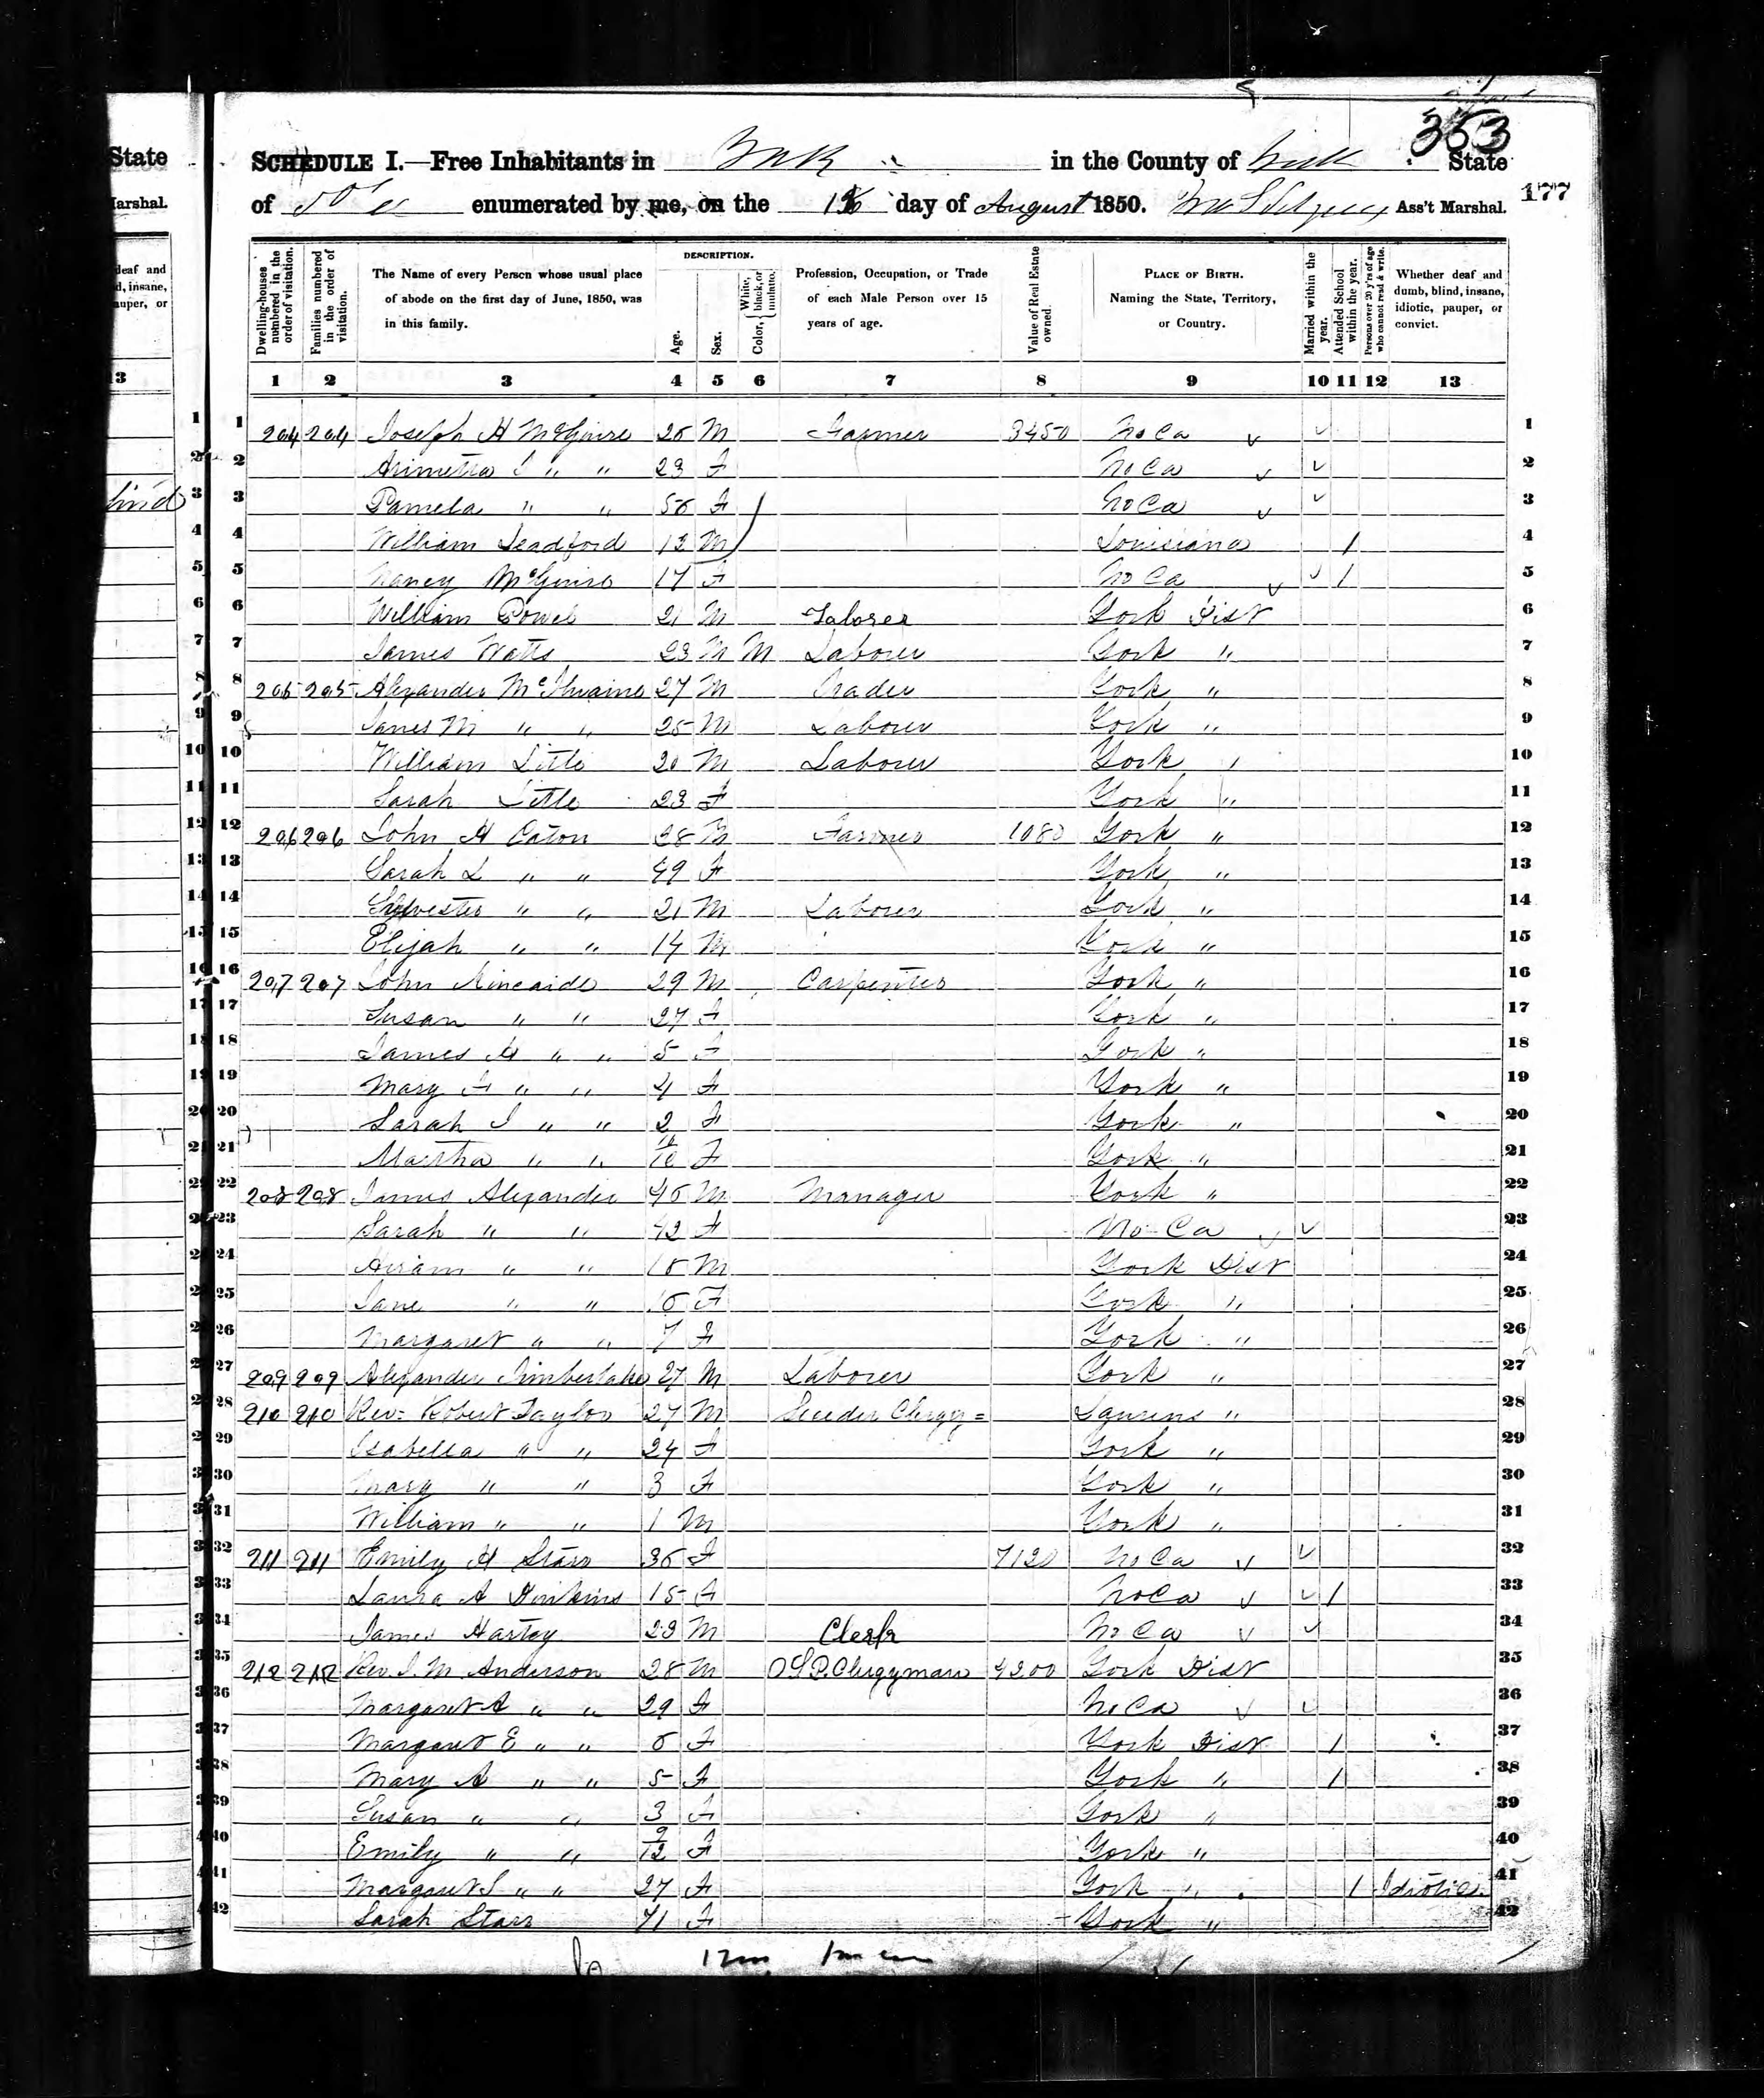 353
State
SCHEDULE I.—Free Inhabitants in York in the County of State
177
arshal.
of enumerated by me, on the 16 day of August 1850. Ass't Marshal.
deaf and
d, insane,
auper, or
Dwelling-houses numbered in the order of visitation.
Families numbered in the order of visitation.
The Name of every Person whose usual place of abode on the first day of June, 1850, was in this family.
DESCRIPTION.
Age.
Sex.
Color, White, black, or mulatto.
Profession, Occupation, or Trade of each Male Person over 15 years of age.
Value of Real Estate owned.
PLACE OF BIRTH. Naming the State, Territory, or Country.
Married within the year.
Attended School within the year.
Persons over 20 y'rs of age who cannot read & write.
Whether deaf and dumb, blind, insane, idiotic, pauper, or convict.
3
1 2 3 4 5 6 7 8 9 10 11 12 13
1 204 204 Joseph H McGuire M Farmer 3450 No Ca 1
2 J " " 23 F No Ca 2
3 Pamela " " 56 F No Ca 3
4 William Leadford 13 M Louisiana 1 4
5 Nancy McGuire 17 F No Ca 1 5
6 William Powel 21 M Laborer York Dist 6
7 James Watts 23 M M Laborer York " 7
8 205 205 Alexander McIlwaine 27 M Trader York " 8
9 James M " " 25 M Laborer York " 9
10 William Little 20 M Laborer York " 10
11 Sarah Little 23 F York " 11
12 206 206 John H Caton M Farmer 1080 York " 12
13 Sarah L " " 49 F York " 13
14 Sylvester " " 21 M Laborer York " 14
15 Elijah " " 14 M York " 15
16 207 207 John Kincaide 29 M Carpenter York " 16
17 Susan " " 27 F York " 17
18 James H " " 5 F York " 18
19 Mary F " " 4 F York " 19
20 Sarah J " " 2 F York " 20
21 Martha " " F York " 21
22 208 208 James Alexander 46 M Manager York " 22
23 Sarah " " 42 F No Ca 23
24 Hiram " " M York Dist 24
25 Jane " " F York " 25
26 Margaret " " 7 F York " 26
27 209 209 Alexander Timberlake 27 M Laborer York " 27
28 210 210 Rev: Robert Taylor 27 M Seceder Clergy= Laurens " 28
29 Isabella " " 24 F York " 29
30 Mary " " 3 F York " 30
31 William " " 1 M York " 31
32 211 211 Emily H Starr 36 F 7120 No Ca 32
33 Laura A 15 F No Ca 1 33
34 James Hartey 23 M Clerk No Ca 34
35 212 212 Rev J. M Anderson 28 M O.S.P. Clergyman 4200 York Dist 35
36 Margaret A " " 29 F No Ca 36
37 Margaret E " " 6 F York Dist 1 37
38 Mary A " " 5 F York " 1 38
39 Susan " " 3 F York " 39
40 Emily " " 9/12 F York " 40
41 Margaret J " " 27 F York " 1 Idiotic 41
42 Sarah Starr 71 F York " 42